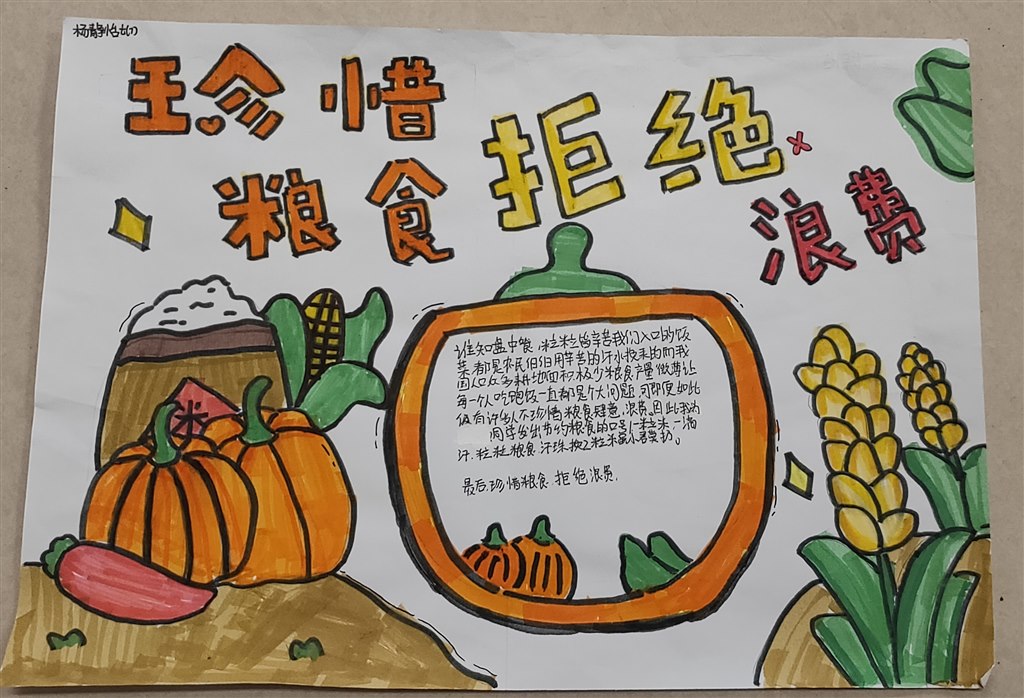 珍惜
粮食
拒绝
浪费
米
谁知盘中餐,粒粒皆辛苦我们入口的饭
菜都是农民伯伯用辛苦的汗水换来的而我
国人口众多耕地面积极少粮食产量做劳让
每一个人吃饱饭一直都是个大问题,可即便如此
仍有许多人不珍惜粮食肆意,浪费,因此我为
同学发出节约粮食的口号一粒米,一滴
汗.粒粒粮食汗珠换
最后,珍惜粮食.拒绝浪费.